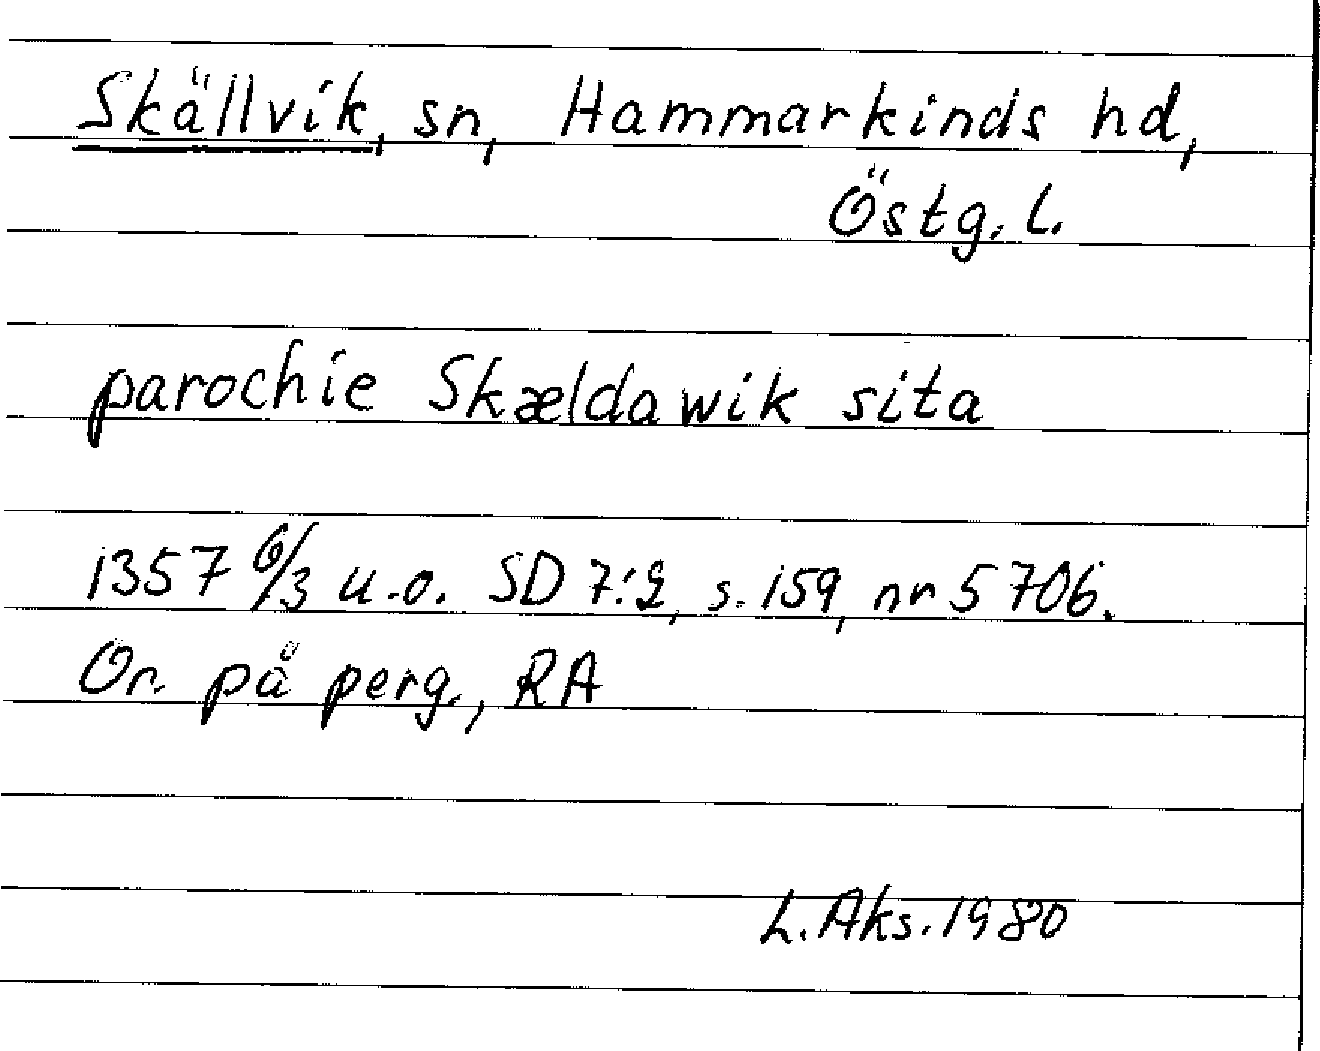 Skällvik, sn, Hammarkinds hd,
Östg. l.
parochie Skældawik sita
1357 6/3 u.o. SD 7:2, s. 159, nr 5706.
Or. på perg., RA
L. Aks. 1980